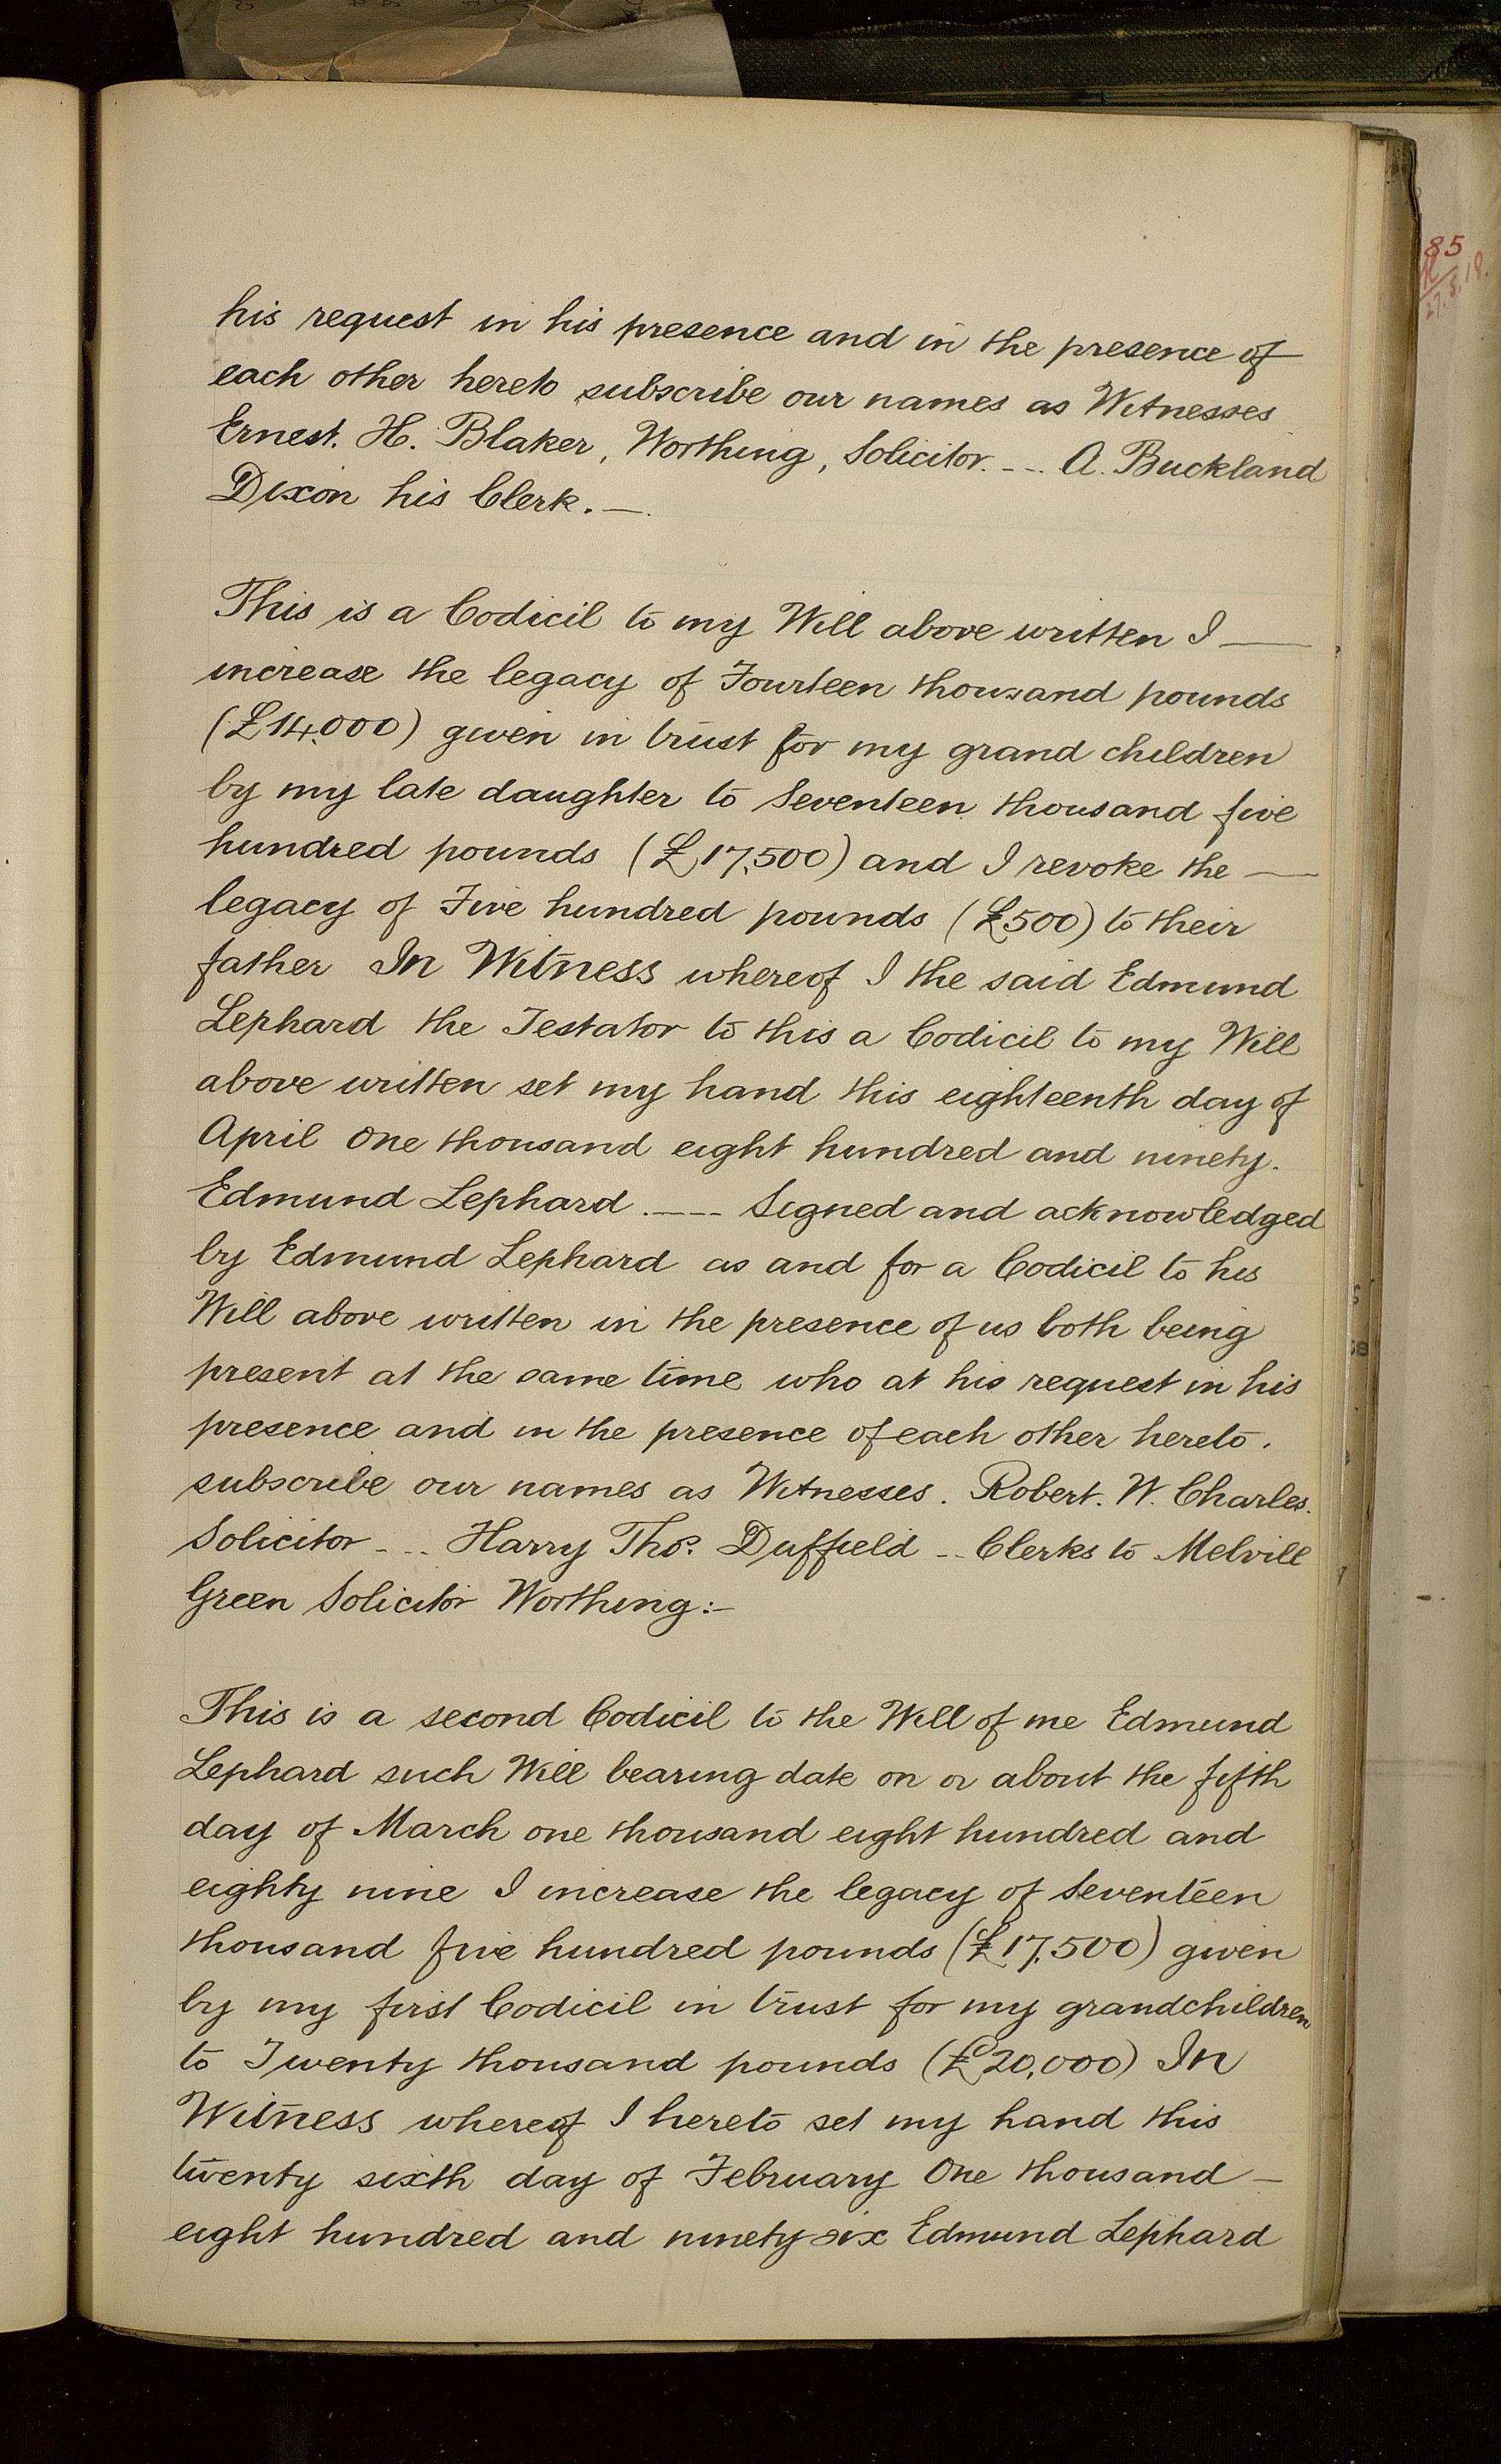 his request in his presence and in the presence of
each other hereto subscribe our names as Witnesses
Ernest. H. Blaker, Worthing, Solicitor. - - - A. Buckland
Dixon his Clerk. —
This is a Codicil to my Will above written I —
increase the legacy of Fourteen thousand pounds
(£14,000) given in trust for my grand children
by my late daughter to Seventeen thousand five
hundred pounds (£17,500) and I revoke the —
legacy of Five hundred pounds (£500) to their
father In Witness whereof I the said Edmund
Lephard the Testator to this a Codicil to my Will
above written set my hand this eighteenth day of
April One thousand eight hundred and ninety.
Edmund Lephard . — - - Signed and acknowledged
by Edmund Lephard as and for a Codicil to his
Will above written in the presence of us both being
present at the same time who at his request in his
presence and in the presence of each other hereto.
subscribe our names as Witnesses. Robert. W. Charles.
Solicitor - - - Harry Thos. Duffield - - Clerks to Melvill
Green Solicitor Worthing:-
This is a second Codicil to the Will of me Edmund
Lephard such Will bearing date on or about the fifth
day of March one thousand eight hundred and
eighty nine I increase the legacy of Seventeen
thousand five hundred pounds (£17,500) given
by my first Codicil in trust for my grandchildren
to Twenty thousand pounds (£20,000) In
Witness whereof I hereto set my hand this
twenty sixth day of February One thousand —
eight hundred and ninety six Edmund Lephard
85
27.8.18.